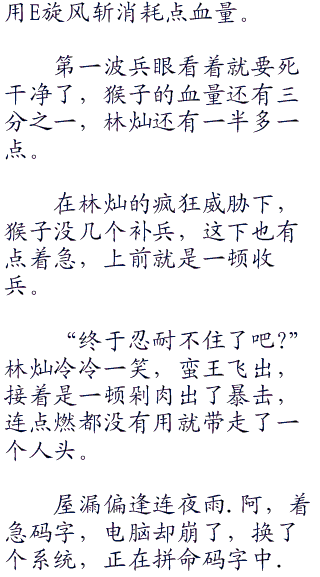 用E旋风斩消耗点血量。
第一波兵眼看着就要死
干净了，猴子的血量还有三
分之一，林灿还有一半多一
点。
在林灿的疯狂威胁下，
猴子没几个补兵，这下也有
点着急，上前就是一顿收
兵。
“终于忍耐不住了吧?”
林灿冷冷一笑，蛮王飞出，
接着是一顿剁肉出了暴击，
连点燃都没有用就带走了一
个人头。
屋漏偏逢连夜雨.阿，着
急码字，电脑却崩了，换了
个系统，正在拼命码字中.